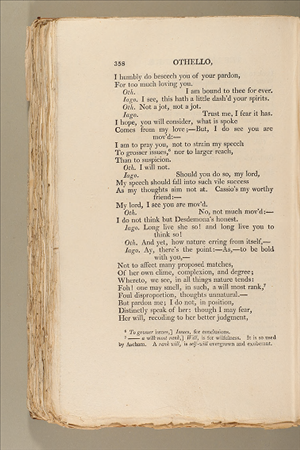 358 OTHELLO,
I humbly do beseech you of your pardon,
For too much loving you.
Oth. I am bound to thee for ever.
Iago. I see, this hath a little dash'd your spirits.
Oth. Not a jot, not a jot.
Iago. Trust me, I fear it has.
I hope, you will consider, what is spoke
Comes from my love;—But, I do see you are
mov'd:—
I am to pray you, not to strain my speech
To grosser issues,⁶ nor to larger reach,
Than to suspicion.
Oth. I will not.
Iago. Should you do so, my lord,
My speech should fall into such vile success
As my thoughts aim not at. Cassio's my worthy
friend:—
My lord, I see you are mov'd.
Oth. No, not much mov'd:—
I do not think but Desdemona's honest.
Iago. Long live she so! and long live you to
think so!
Oth. And yet, how nature erring from itself,—
Iago. Ay, there's the point:—As,—to be bold
with you,—
Not to affect many proposed matches,
Of her own clime, complexion, and degree;
Whereto, we see, in all things nature tends:
Foh! one may smell, in such, a will most rank,⁷
Foul disproportion, thoughts unnatural.—
But pardon me; I do not, in position,
Distinctly speak of her: though I may fear,
Her will, recoiling to her better judgment,
⁶ To grosser issues,] Issues, for conclusions.
⁷ —— a will most rank,] Will, is for wilfulness. It is so used
by Ascham. A rank will, is self-will overgrown and exuberant.